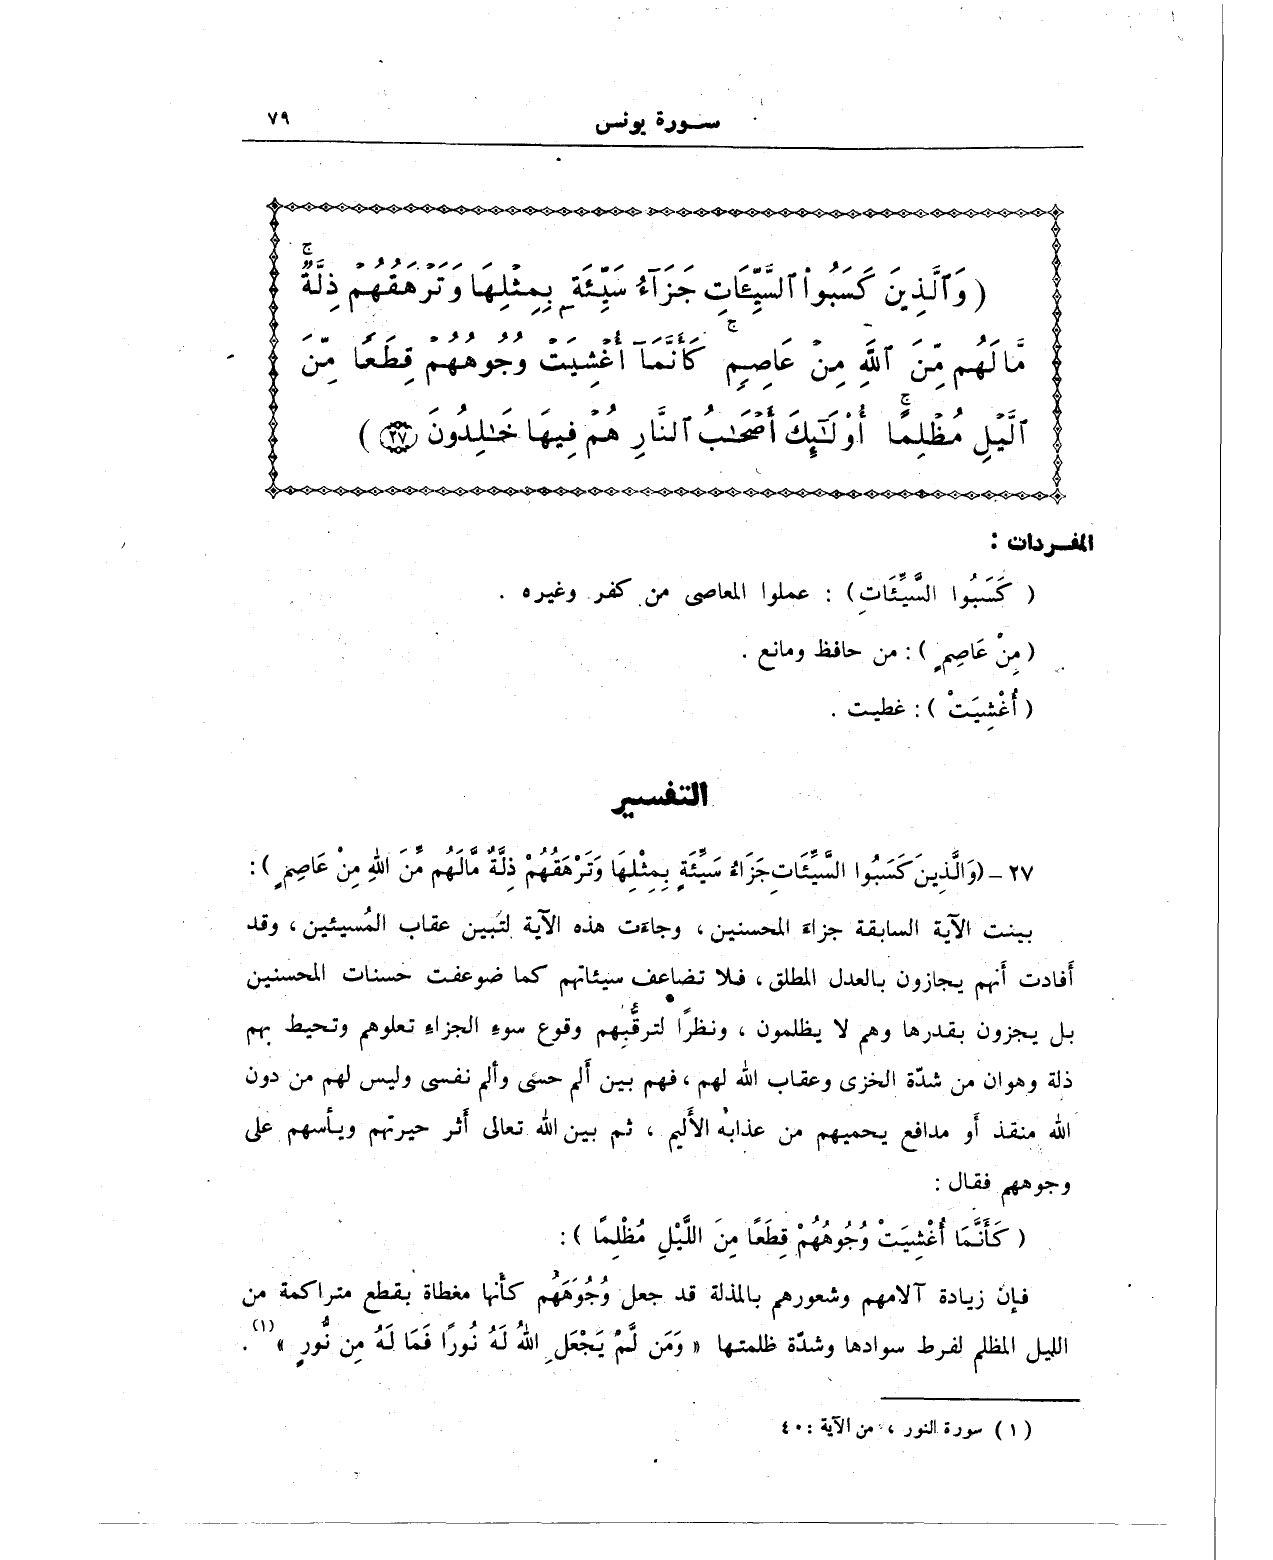 سورة يونس ٧٩
( وَٱلَّذِينَ كَسَبُوا۟ ٱلسَّيِّـَٔاتِ جَزَآءُ سَيِّئَةٍۭ بِمِثْلِهَا وَتَرْهَقُهُمْ ذِلَّةٌ ۖ
مَّا لَهُم مِّنَ ٱللَّهِ مِنْ عَاصِمٍ ۖ كَأَنَّمَآ أُغْشِيَتْ وُجُوهُهُمْ قِطَعًا مِّنَ
ٱلَّيْلِ مُظْلِمًا ۚ أُو۟لَـٰٓئِكَ أَصْحَـٰبُ ٱلنَّارِ هُمْ فِيهَا خَـٰلِدُونَ ٢٧ )
المفردات :
( كَسَبُوا السَّيِّئَاتِ ) : عملوا المعاصى من كفر وغيره .
( مِنْ عَاصِمٍ ) : من حافظ ومانع .
( أُغْشِيَتْ ) : غطيت .
التفسير
٢٧ - (وَالَّذِينَ كَسَبُوا السَّيِّئَاتِ جَزَاءُ سَيِّئَةٍ بِمِثْلِهَا وَتَرْهَقُهُمْ ذِلَّةٌ مَّالَهُم مِّنَ اللهِ مِنْ عَاصِمٍ ) :
بينت الآية السابقة جزاء المحسنين ، وجاءت هذه الآية لتُبين عقاب المُسيئين ، وقد
أفادت أنهم يجازون بالعدل المطلق ، فلا تضاعف سيئاتهم كما ضوعفت حسنات المحسنين
بل يجزون بقدرها وهم لا يظلمون ، ونظرًا لترقُّبِهم وقوع سوءِ الجزاءِ تعلوهم وتحيط بهم
ذلة وهوان من شدّة الخزى وعقاب الله لهم ، فهم بين ألم حسّى وألم نفسى وليس لهم من دون
الله منقذ أو مدافع يحميهم من عذابه الأليم ، ثم بين الله تعالى أثر حيرتهم ويأسهم على
وجوههم فقال :
( كَأَنَّمَا أُغْشِيَتْ وُجُوهُهُمْ قِطَعًا مِنَ اللَّيْلِ مُظْلِمًا ) :
فإن زيادة آلامهم وشعورهم بالمذلة قد جعل وُجُوهَهُم كأنها مغطاة بقطع متراكمة من
الليل المظلم لفرط سوادها وشدّة ظلمتها « وَمَن لَّمْ يَجْعَلِ اللهُ لَهُ نُورًا فَمَا لَهُ مِن نُّورٍ » (١) .
(١) سورة النور ، من الآية : ٤٠